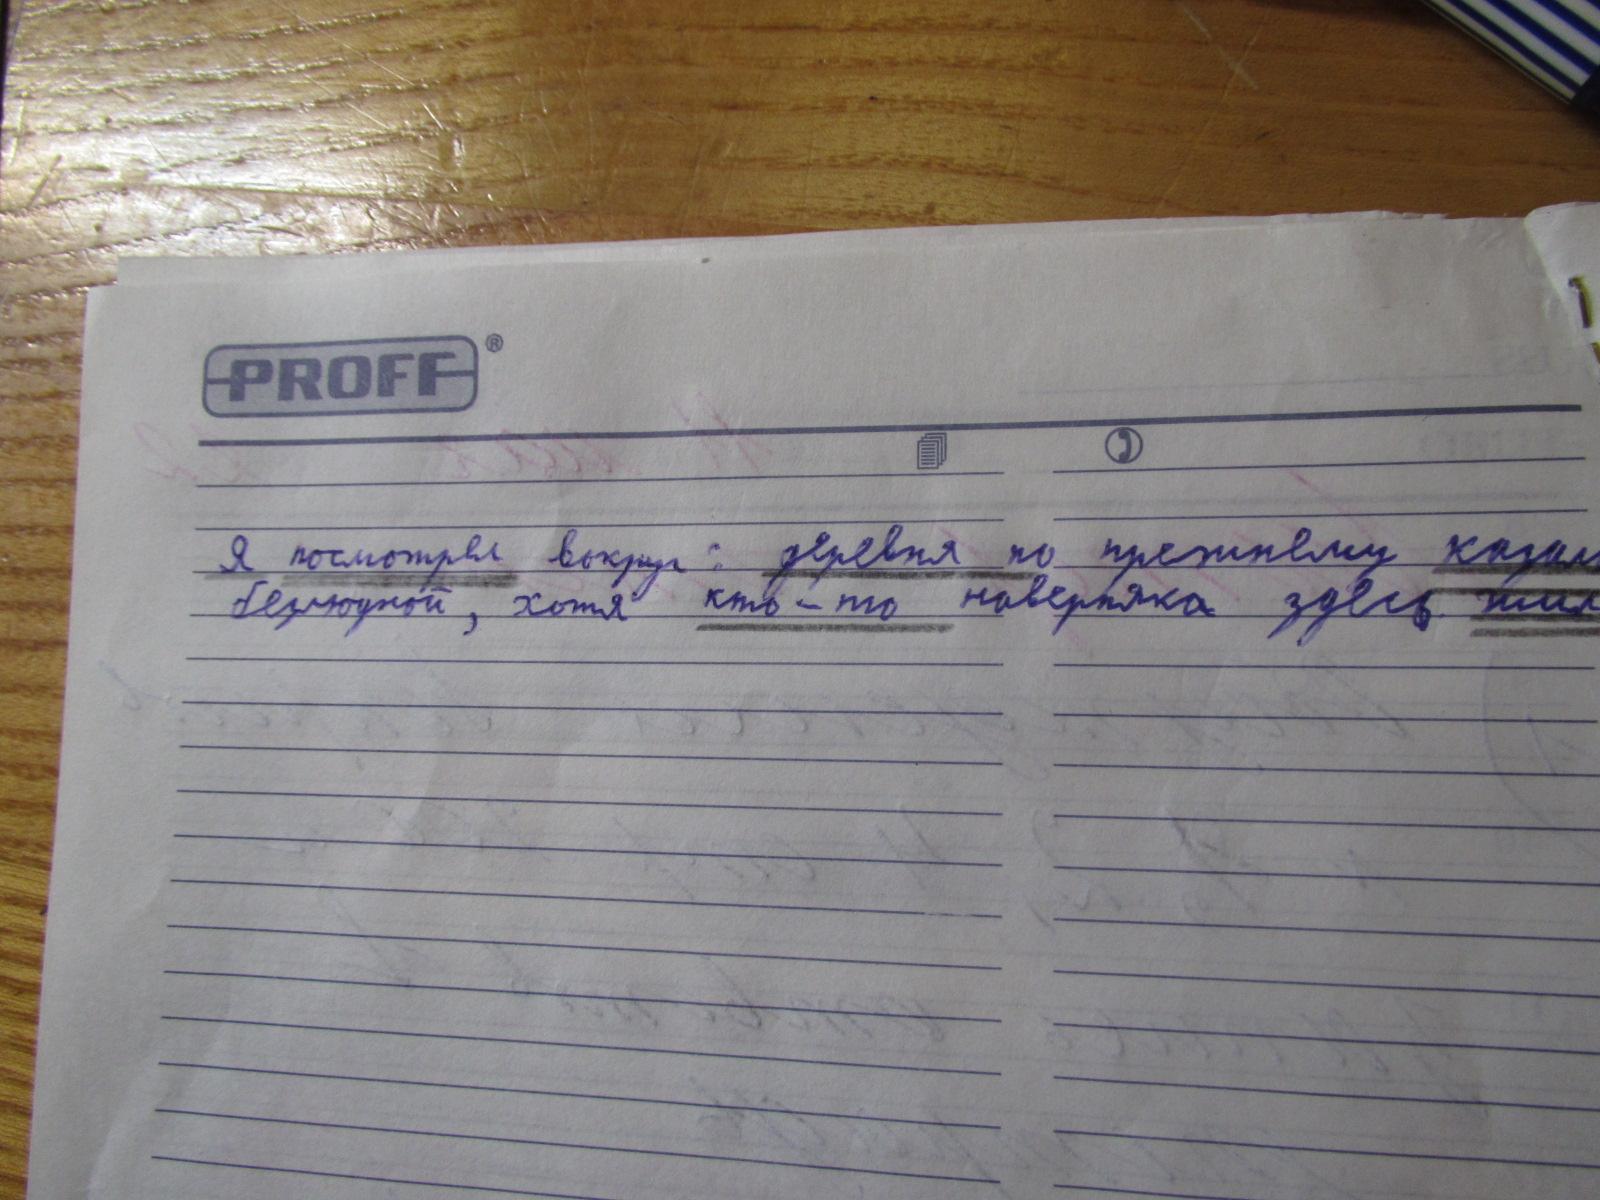 PROFF®
Я посмотрел вокруг: деревня по прежнему казал
безлюдной, хотя кто-то наверняка здесь жил